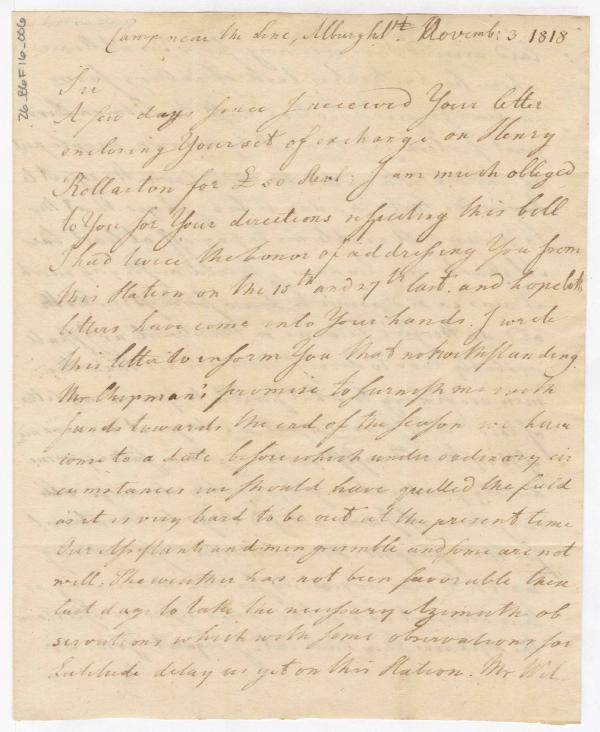 76_B6F16_006
Camp near the Line, Alburgh Vt. Novemb: 3 1818
Sir
A few days since I received Your letter
enclosing Your set of exchange on Henry
for £ 50 I am much obliged
to You for Your directions respecting this bill
I had twice the honor of addressing You from
this Station on the 15th and 27th last. and hope both
letters have come into Your hands. I write
this letter to inform You that notwithstanding
Mr. Chipman's promise to furnish me with
funds towards the end of the season we have
come to a date before which under ordinary cir
cumstances we should have quitted the field
as it is very hard to be out at the present time
Our Assistants and men grumble and some are not
well. The weather has not been favorable these
last days to take the necessary Azimuth ob
servations which with some observations for
Latitude delay us yet on this Station. Mr Wil